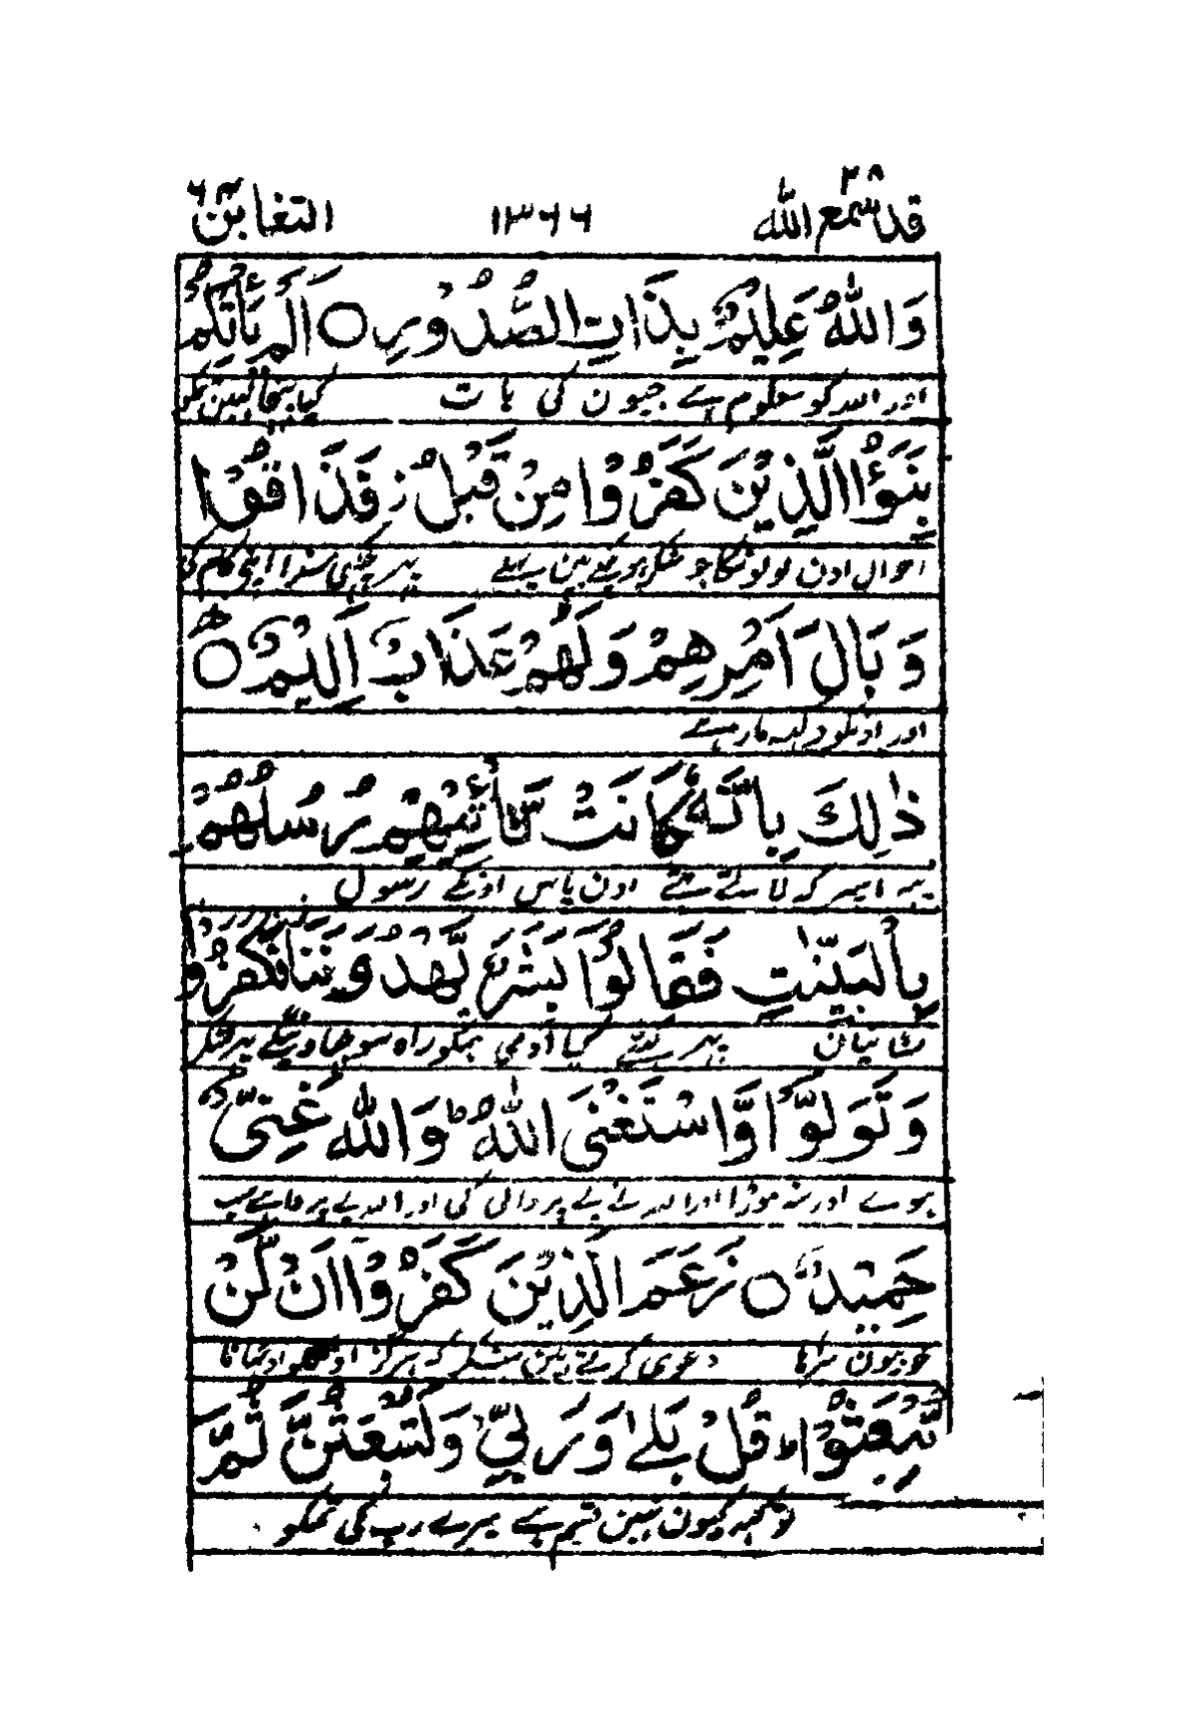 قد سمع الله ٢٨ ١٣٦٦ التغابن ٦٤
وَاللّٰهُ عَلِيْمٌۢ بِذَاتِ الصُّدُوْرِ ○ اَلَمْ يَاْتِكُمْ
اور اللہ کو معلوم ہے جیون کی بات کیا پہنچا نہین تمکو
نَبَؤُا الَّذِيْنَ كَفَرُوْا مِنْ قَبْلُ ز فَذَاقُوْا
احوال اون لوگونکا جو منکر ہوچکے ہین پہلے پہر چکھی سزا اپنی کام کی
وَبَالَ اَمْرِهِمْ وَلَهُمْ عَذَابٌ اَلِيْمٌ ○
اور اونکو دکھہ مار ہے
ذٰلِكَ بِاَنَّهٗ كَانَتْ تَّاْتِيْهِمْ رُسُلُهُمْ
یہہ اسپر کہ لاتے تھے اون پاس اونکے رسول
بِالْبَيِّنٰتِ فَقَالُوْٓا بَشَرٌ يَّهْدُوْنَنَا فَكَفَرُوْا
نشانیان پہر کہتے کیا آدمی ہمکو راہ سوجھاوینگے پہر منکر
وَتَوَلَّوْا وَّاسْتَغْنَى اللّٰهُ ط وَاللّٰهُ غَنِيٌّ
ہوے اور منہ موڑا اور اللہ نے بے پروائی کی اور اللہ بے پروا ہے سب
حَمِيْدٌ ○ زَعَمَ الَّذِيْنَ كَفَرُوْٓا اَنْ لَّنْ
خوبیون سراہا دعوی کرتے ہین منکر کہ ہرگز اونکو اوٹھانا
يُّبْعَثُوْا ط قُلْ بَلٰى وَرَبِّيْ لَتُبْعَثُنَّ ثُمَّ
تو کہہ کیون نہین قسم ہے میرے رب کی تمکو